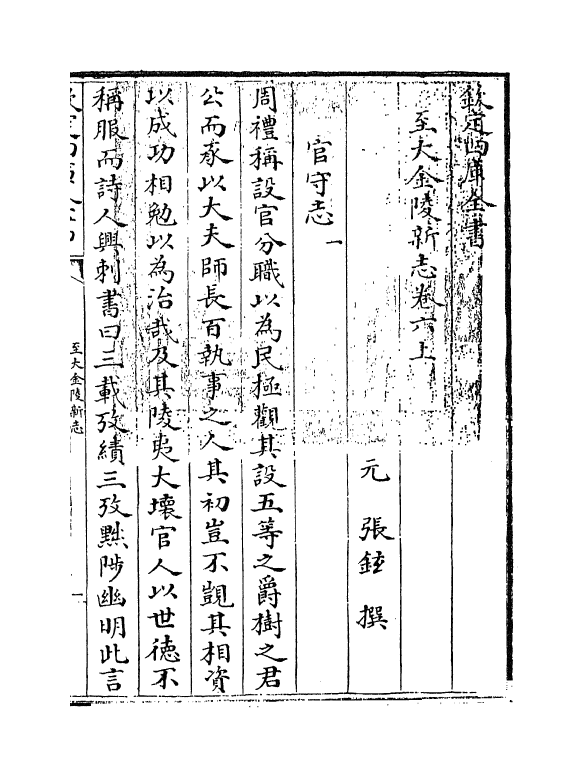 欽定四庫全書
至大金陵新志卷六上
元　張鉉　撰
官守志一
周禮稱設官分職以為民極觀其設五等之爵樹之君
公而承以大夫師長百執事之人其初豈不覬其相資
以成功相勉以為治哉及其陵夷大壞官人以世徳不
稱服而詩人興刺書曰三載攷績三攷黜陟幽明此言
至大金陵新志
一